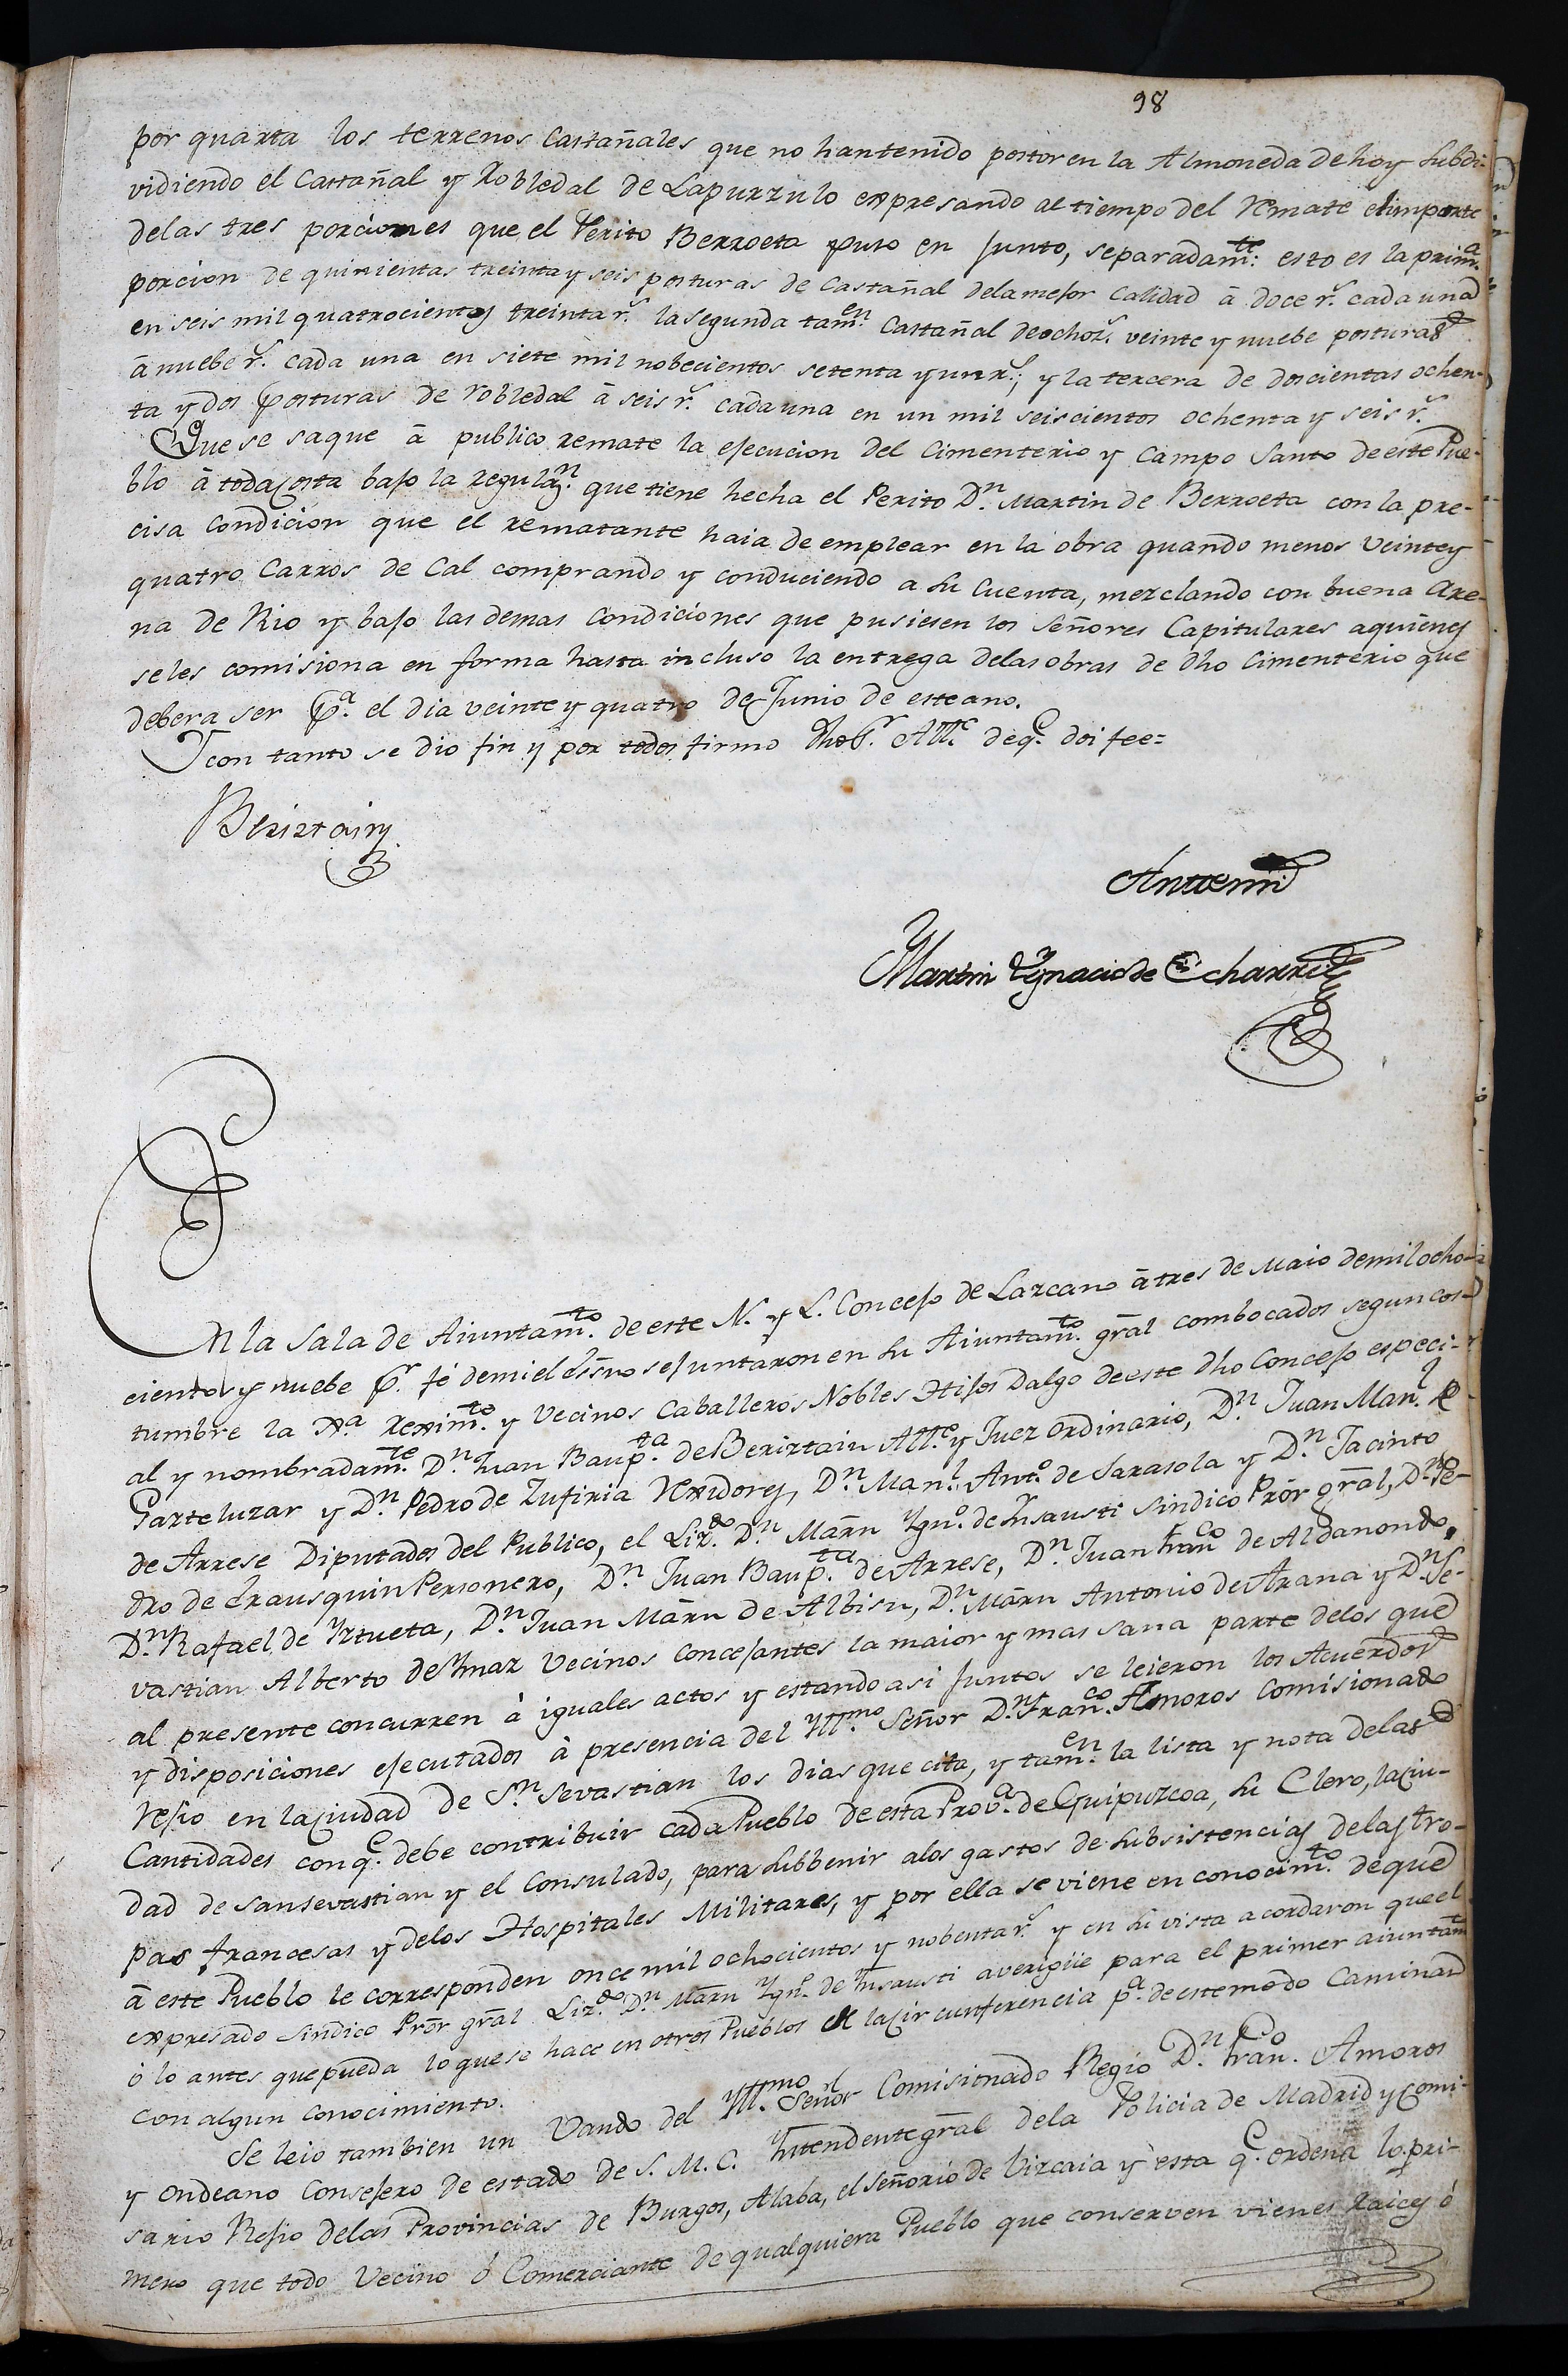 98
por quarta los terrenos Castañales que no hantenido postor en la Almoneda de hoy subdi-
vidiendo el Castañal y Robledal de Lapurzulo expresando al tiempo del remate elimporte
delas tres porciones que el Perito Berroeta puso en Junto, separadamte: esto es la prima.
porcion de quinientas treinta y seis posturas de Castañal dela mejor Calidad â doce rs. cada una
en seis mil quatrocientos treinta rs. la segunda tamen. Castañal de ochoz. veinte y nuebe posturas
â nuebe rs. cada una en siete mil nobecientos setenta y un rs.; y la tercera de doscientas ochen-
ta y dos posturas de robledal â seis rs. cada una en un mil seiscientos ochenta y seis rs.
Que se saque â publico remate la ejecucion del Cimenterio y Campo Santo de este Pue-
blo â toda Costa bajo la regulazn. que tiene hecha el Perito Dn. Martin de Berroeta con la pre-
cisa Condicion que el rematante haia de emplear en la obra quando menos veinte y
quatro Carros de Cal comprando y conduciendo a su Cuenta, mezclando con buena are-
na de Rio y bajo las demas Condiciones que pusiesen los Señores Capitulares aquienes
seles comisiona en forma hasta incluso la entrega delas obras de dho Cimenterio que
debera ser pa. el dia veinte y quatro de Junio de este ano.
Y con tanto se dio fin y por todos firmo dho Sr. Alle. de q. doi fee=
Beriztain
Antemi
Martin Ygnacio de Echarri
En la Sala de Aiuntamto. de este N. y L. Concejo de Lazcano â tres de Maio demil ocho-
cientos y nuebe pr. fé demi el esno se juntaron en su Aiuntamto. gral combocados segun cos-
tumbre la Xa. reximto. y Vecinos Caballeros Nobles Hijos Dalgo de este dho Concejo especi-
al y nombradamte. Dn. Juan Baupta. de Beriztain Alle. y Juez ordinario, Dn. Juan Manl. de
Garteluzar y Dn. Pedro de Zufiria Rexidores, Dn. Manl. Anto. de Sarasola y Dn. Jacinto
de Arrese Diputados del Publico, el Lizdo. Dn. Marn Ygno. de Insausti Sindico Pror gral, Dn. Pe-
dro de Erausquin Personero, Dn. Juan Baupta. de Arrese, Dn. Juan Franco de Aldanondo,
Dn. Rafael de Yztueta, Dn. Juan Marn de Albisu, Dn. Marn Antonio de Arana y Dn. Se-
vastian Alberto de Ymaz Vecinos Concejantes la maior y mas sana parte delos que
al presente concurren â iguales actos y estando asi Juntos se leieron los Acuerdos
y disposiciones ejecutados â presencia del Yllmo. Señor Dn. Franco. Amoros Comisionado
rejio en la Ciudad de Sn. Sevastian los dias que cita, y tamen. la lista y nota delas
Cantidades con q. debe contribuir cada Pueblo de esta Prova. de Guipuzcoa, su Clero, la Ciu-
dad de sansevastian y el Consulado, para subbenir alos gastos de subsistencias delas tro-
pas francesas y delos Hospitales Militares, y por ella se viene en conocimto. de que
â este Pueblo le corresponden once mil ochocientos y nobenta rs. y en su vista acordaron que el
expresado Sindico Pror gral Lizdo. Dn. Marn Ygno. de Insausti averigüe para el primer aiuntamt
ô lo antes que pueda lo que se hace en otros Pueblos de la circunferencia pa. de este modo Caminar
con algun conocimiento.
Se leio tambien un Vando del Yllmo. Señor Comisionado Regio Dn. Franco. Amoros
y Ondeano Consejero de estado de S. M. C. Yntendente gral dela Policia de Madrid y Comi-
sario Rejio delas Provincias de Burgos, Alaba, el Señorio de Vizcaia y esta q. ordena lo pri-
mero que todo Vecino ô Comerciante de qualquiera Pueblo que conserven vienes raices ô